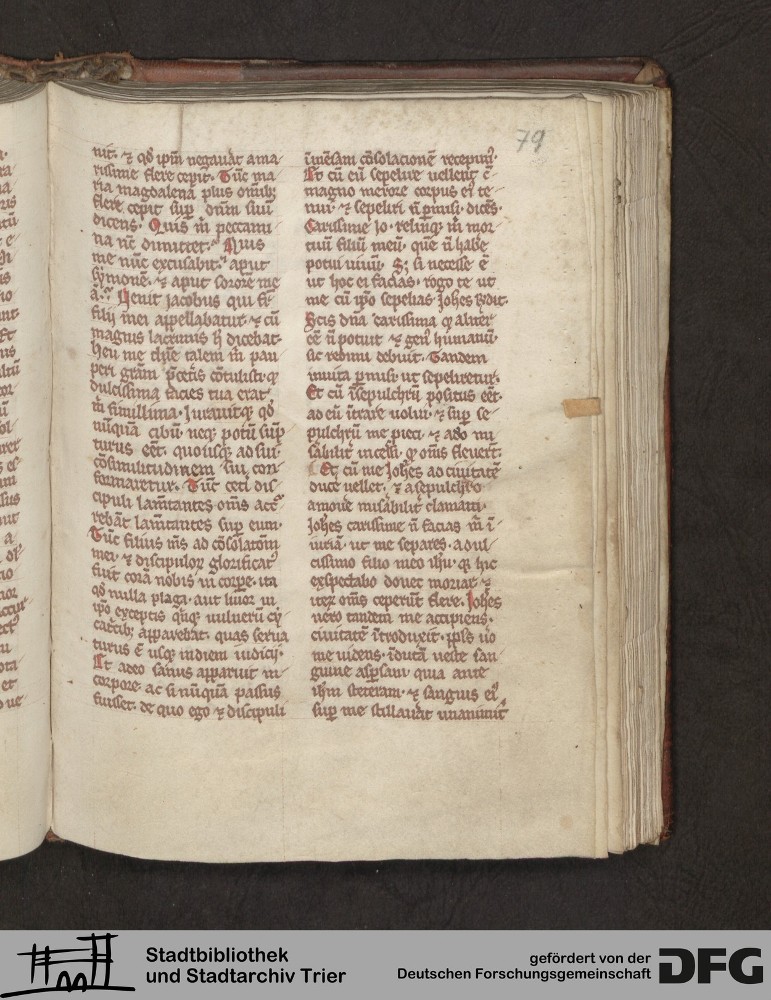 79
nit. ⁊ qđ ipm̄ negauāt ama-
rissime flere cepit. Tūc ma-
ria magdalena plus omīb;
flere cepit sup̄ dn̄m suū
dicens. Quis m̄ peccami-
na nc̄ dimittet. Quis
me nūc excusabit. aput
symonē. ⁊ aput sororē me
ā. Uenit jacobus qui fr̄
filij mei appellabatur ⁊ cū
magnis lacrimis h̄ dicebat.
heu me dn̄e talem m̄ pau
peri grām p̄ cetīs cōtulisti. ꝙ
dulcissima facies tua erat
m̄ simillima. Jurauitqꝫ qđ
nūquā cibū neqꝫ potū sūp
turus eēt. quousqꝫ ad sui
cōsimilitudinem sui con
formaretur. Tūc ceti dis
cipuli lam̄tantes om̄s acc
rebāt lam̄tantes sup eum.
Tūc filius m̄s ad cōsolatōm
mei ⁊ discipuloꝝ glorificat
fuit corā nobis in corpe. ita
qđ nulla plaga aut liuor in
ip̄o exceptis qiqꝫ uulnerū cy
catcib; apparebat. quas serua
turus ē usqꝫ in diem iudicij.
Et adeo sanus apparuit in
corpore. ac si nūquā passus
fuisset. de quo ego ⁊ discipuli
īmēsam cōsolacionē recepim.
Et cū eū sepelire uellent c̄
magno merore corpus ei te
nui. ⁊ sepeliri n̄ p̄misi. dicēs.
Carissime Jo. relinqꝫ m̄ mor
tuū filiū meū. quē n̄ habe
potui uiuū. S; si necesse ē
ut hoc ei facias. rogo te ut
me cū ip̄o sepelias Johes
Scis dn̄a carissima ꝙ aliter
eē n̄ potuit ⁊ gen̄ humanū
sic redimi debuit. Tandem
inuita p̄misi. ut sepeliretur.
Et cū ī sepulchrū positus eēt.
ad eū ītrare uolui. ⁊ sup se
pulchrū me pieci. ⁊ adō mi
sabilit incessi ꝙ om̄s fleuert.
Et cū me Johes ad ciuitatē
duce uellet. ⁊ a sepulchro
amoue misabilit clamaui.
Johes carissime n̄ facias m̄ ī
iuriā. ut me separes. a dul
cissimo filio meo ihu. qꝫ hic
exspectabo donec moriar ⁊
iteꝝ om̄s ceperūt flere. Johes
uero tandem me accipiens.
ciuitatē ītroduxit. ppls uō
me uidens. īdutā ueste san
guine asp̄sam. quia ante
ihm steteram. ⁊ sanguis ei
sup me stillauāt unanimit
Stadtbibliothek
und Stadtarchiv Trier
gefördert von der
Deutschen Forschungsgemeinschaft
DFG